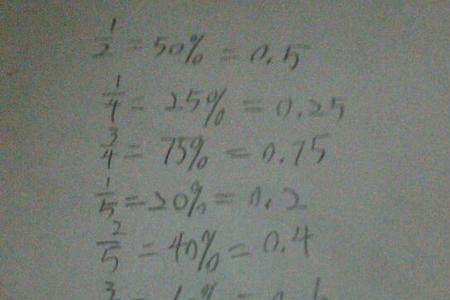 1/2 = 50% = 0.5
1/4 = 25% = 0.25
3/4 = 75% = 0.75
1/5 = 20% = 0.2
2/5 = 40% = 0.4